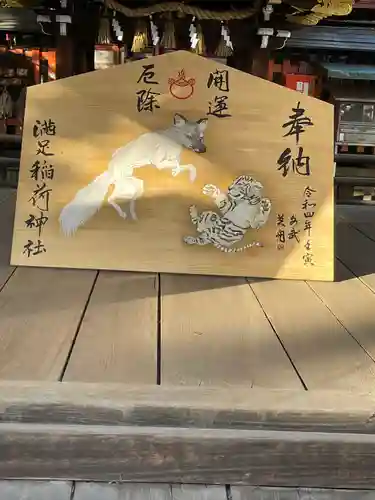 奉納
令和四年壬寅
開運
厄除
満足稲荷神社